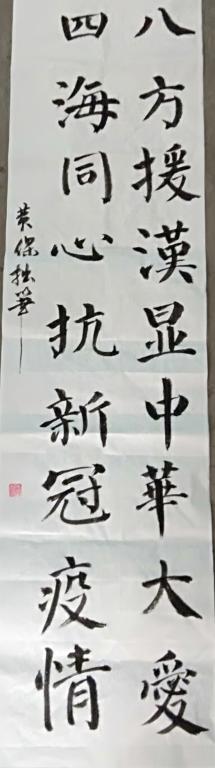 八方援漢显中華大愛
四海同心抗新冠疫情
黄保拙筆